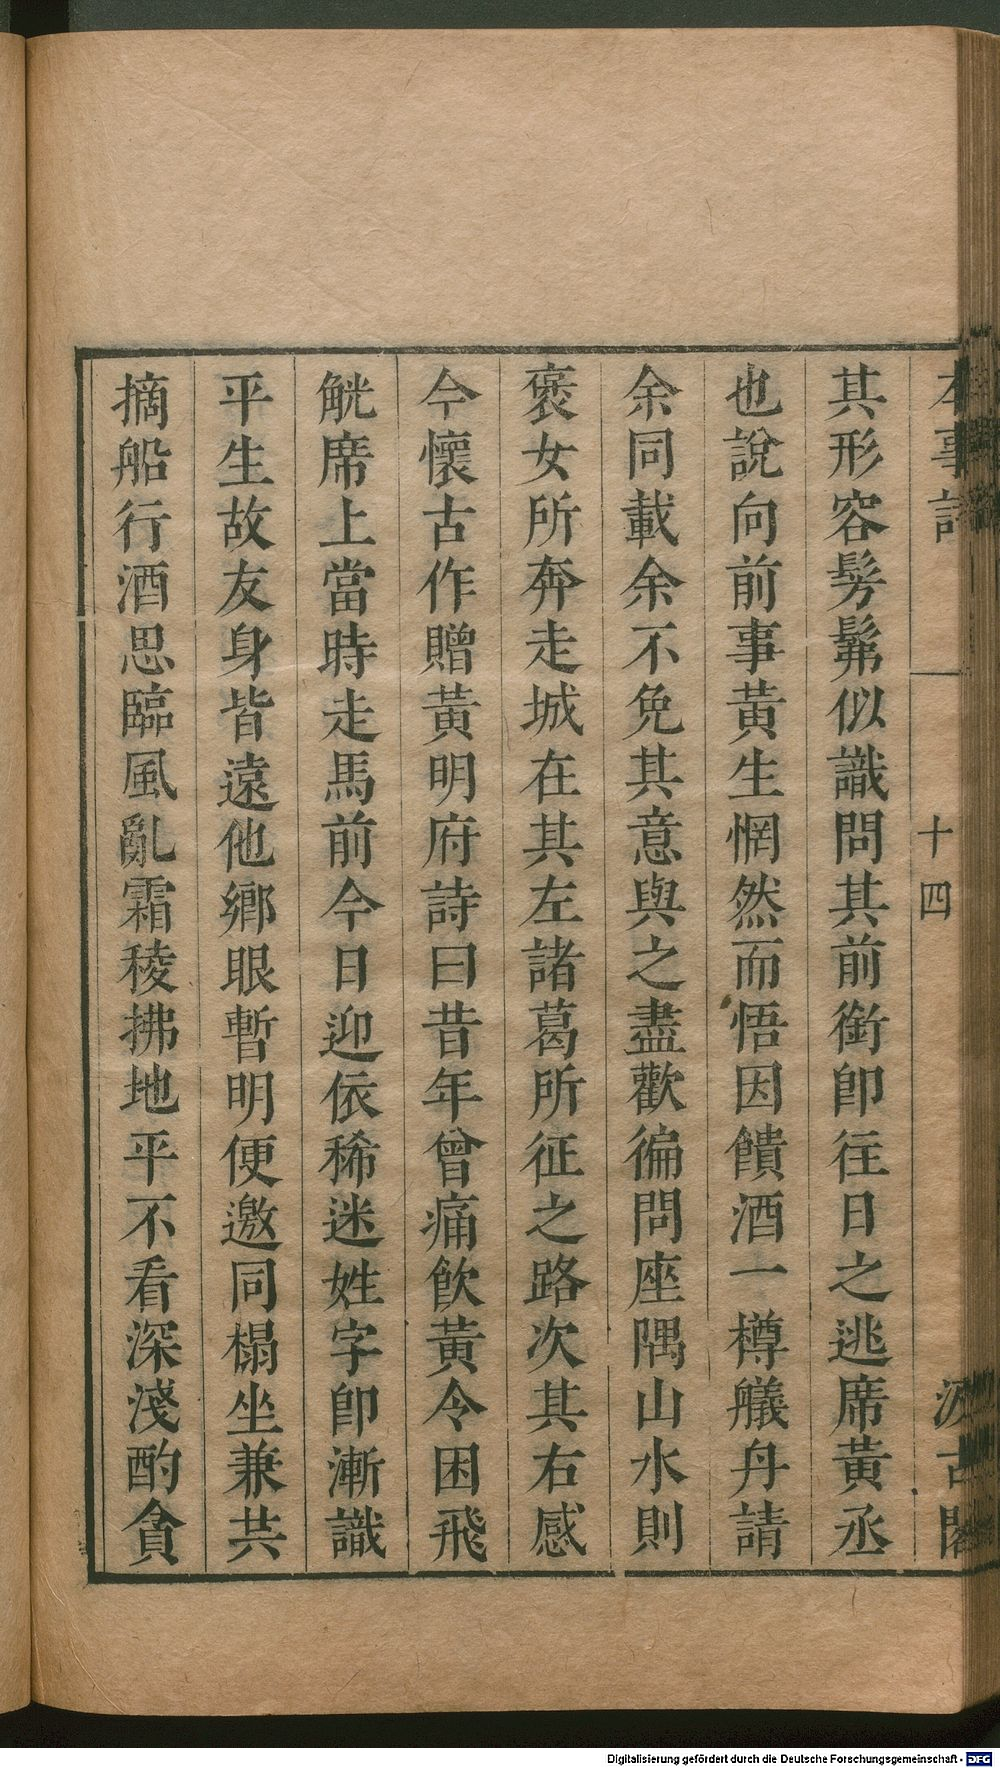 本事詩 十四 汲古閣
其形容髣髴似識問其前銜卽往日之逃席黃丞
也說向前事黃生惘然而悟因饋酒一樽艤舟請
余同載余不免其意與之盡歡徧問座隅山水則
褒女所奔走城在其左諸葛所征之路次其右感
今懷古作贈黃明府詩曰昔年曾痛飲黃令困飛
觥席上當時走馬前今日迎依稀迷姓字卽漸識
平生故友身皆遠他鄉眼暫明便邀同榻坐兼共
摘船行酒思臨風亂霜稜拂地平不看深淺酌貪
Digitalisierung gefördert durch die Deutsche Forschungsgemeinschaft - DFG